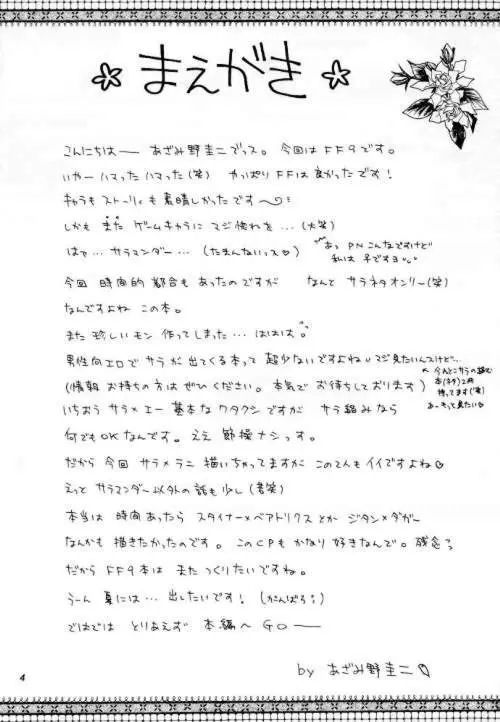 ☆ まえがき ☆
こんにちはー あざみ野圭二でっス。今回はFF9です。
いやー ハマったハマった(笑) やっぱりFFは良かったです!
キャラもストーリィも素晴しかったです〜
しかも また ゲームキャラに マジ惚れを…(大笑)
はぁ… サラマンダー…(たまんないっス♡)
あっ PNこんなですけど
私は 早ですョ
今回 時間的都合もあったのですが なんと サラネタオンリー(笑)
なんですよね この本。
また 珍しいモン 作ってしまった… ははは。
男性向エロで サラが出てくる本って 超少ないですよね マジ見たいんスけど…
(情報 お持ちの方は ぜひください。本気で お待ちしております)
今んとこサラの絡む
本(ネタ)2冊
持ってます(笑)
あーもっと見たい
いちおう サラ×エー 基本なワタクシですが サラ絡みなら
何でもOKなんです。ええ 節操ナシっす。
だから 今回 サラ×ラニ 描いちゃってますが この2人もイイですよね♡
えっと サラマンダー以外の話も少し(苦笑)
本当は 時間あったら スタイナー×ベアトリクスとか ジタン×ダガー
なんかも 描きたかったのです。このCPも かなり好きなんで。残念
だから FF9本は またつくりたいですね。
うーん 夏には… 出したいです!(がんばろ)
ではでは とりあえず 本編へ GOー
by あざみ野圭二
4